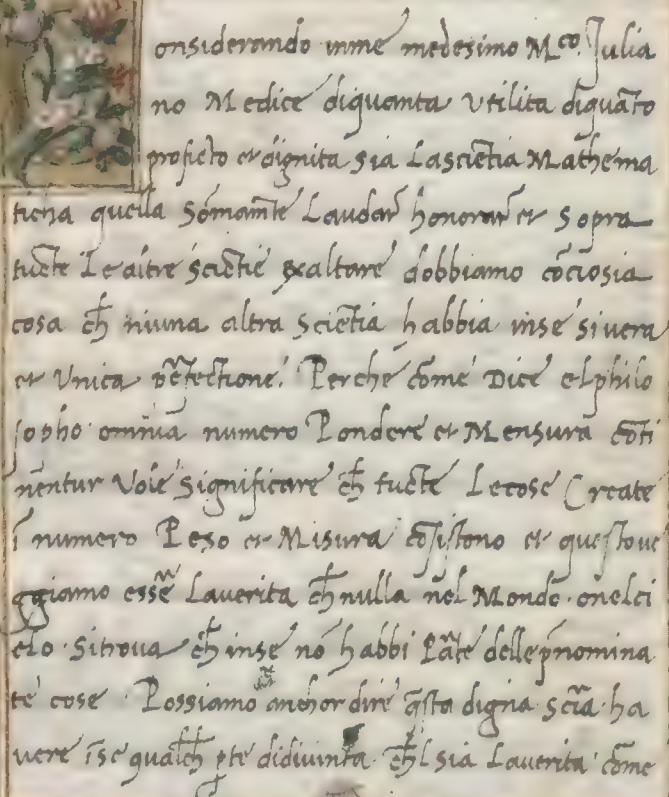 onsiderando inme medesimo M.co Julia
no Medice diquanta Utilita diquāto
profitto et dignita sia Lasciētia Mathema
ticha quella Sōmamēte Laudar honorar et Sopra
tucte Le altre sciētie exaltare dobbiamo cōciosia
cosa ch niuna altra Sciētia habbia inse si vera
et Unica Perche come Dice elphilo
sopho omnia numero Pondere et Mensura cōti
nentur Vole significare ch tucte Lecose Create
ī numero Peso et Misura cōsistono et questove
ggiamo essere Laverita ch nulla nel Mondo onelci
elo Sitrova ch inse nō habbi Pāte delle p̄nomina
te cose Possiamo anchor dire q̄sta digna sciā ha
vere īse qualch pte didivinita ch'l sia Laverita come